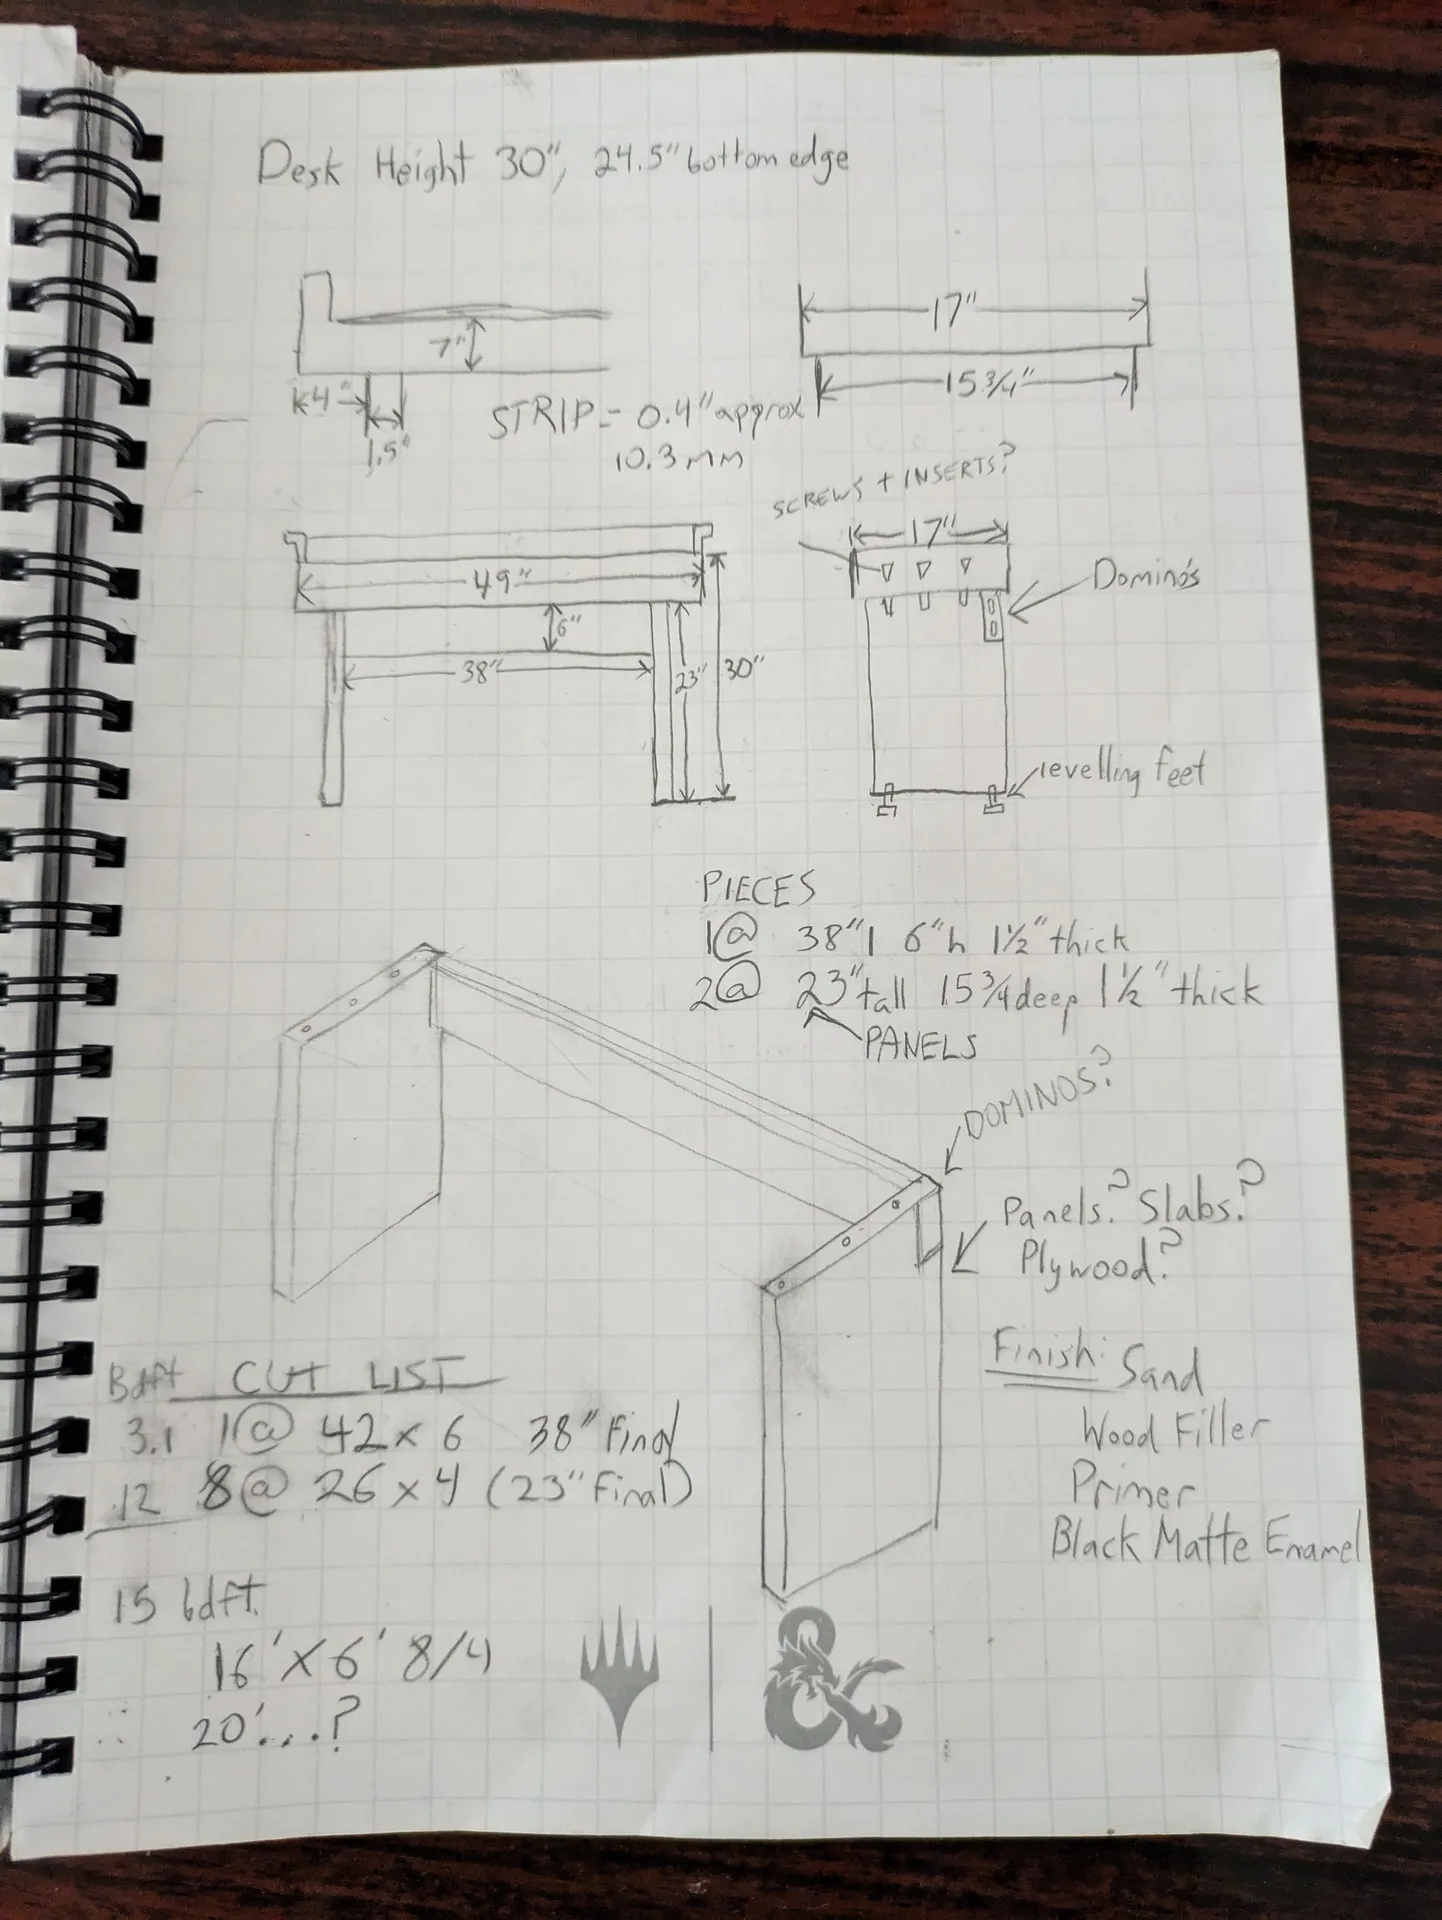 Desk Height 30", 24.5" bottom edge
7"
17"
15 3/4"
4"
1.5"
STRIP = 0.4" approx
10.3 mm
SCREWS + INSERTS?
17"
49"
Domino's
6"
38"
23"
30"
levelling feet
PIECES
1@ 38"l 6"h 1 1/2" thick
2@ 23" tall 15 3/4 deep 1 1/2" thick
PANELS
DOMINOS?
Panels? Slabs?
Plywood?
Finish: Sand
Wood Filler
Primer
Black Matte Enamel
Bdft CUT LIST
3.1 1@ 42 x 6 38" Final
12 8@ 26 x 4 (23" Final)
15 bdft.
16' x 6' 8/4
20'...?